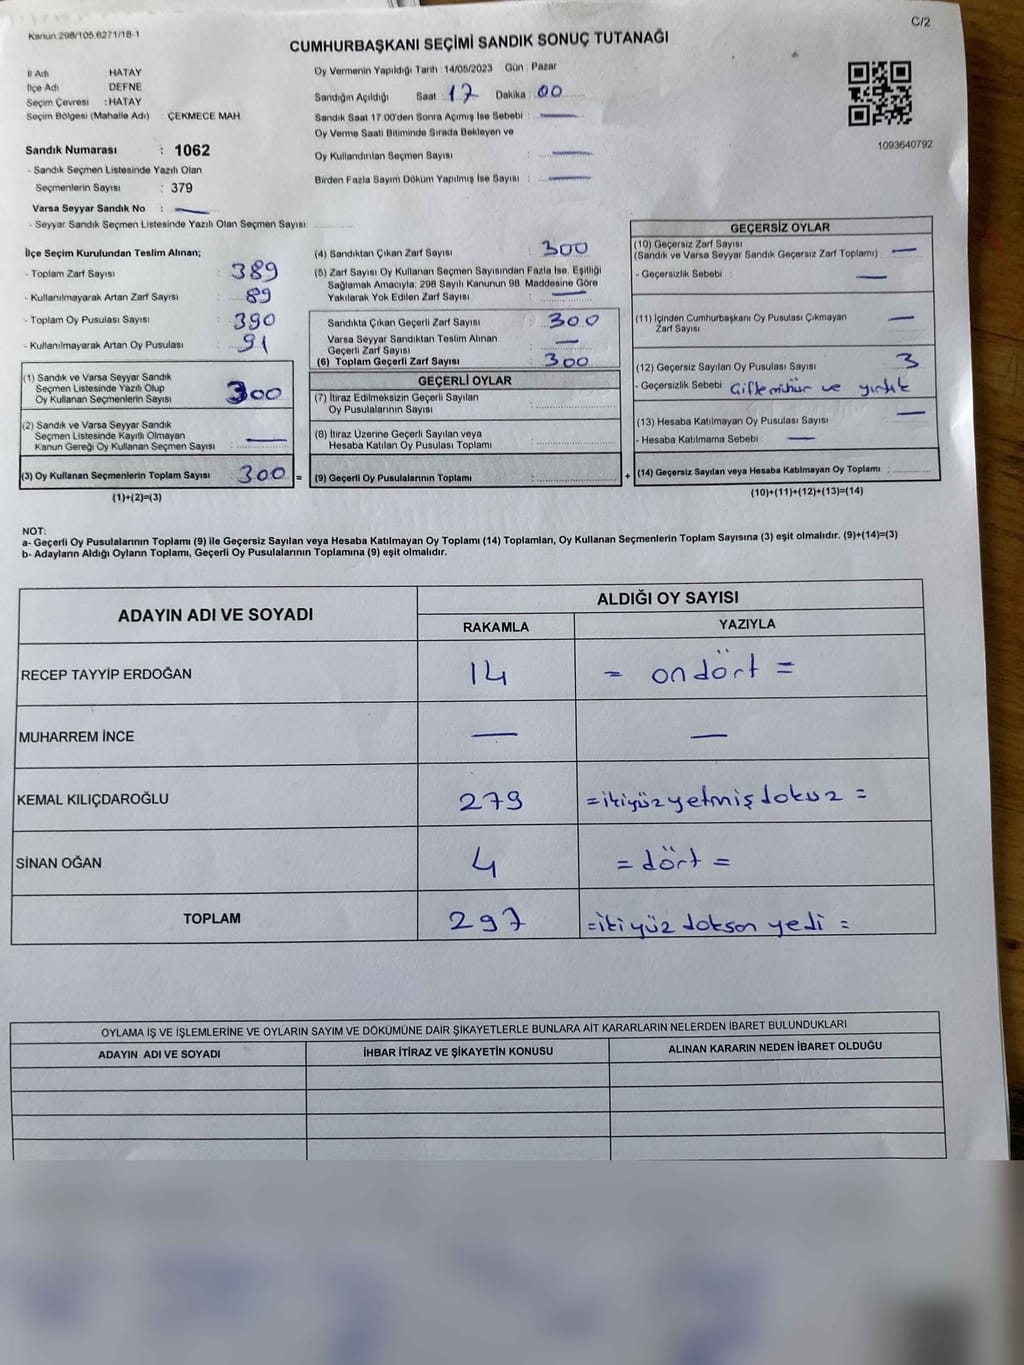 Kanun 298/105,6271/18-1
C/2
CUMHURBAŞKANI SEÇİMİ SANDIK SONUÇ TUTANAĞI
İl Adı HATAY
İlçe Adı DEFNE
Seçim Çevresi : HATAY
Seçim Bölgesi (Mahalle Adı) : ÇEKMECE MAH
Sandık Numarası : 1062
- Sandık Seçmen Listesinde Yazılı Olan
Seçmenlerin Sayısı : 379
Varsa Seyyar Sandık No : —
- Seyyar Sandık Seçmen Listesinde Yazılı Olan Seçmen Sayısı:
Oy Vermenin Yapıldığı Tarih : 14/05/2023 Gün : Pazar
Sandığın Açıldığı Saat : 17 Dakika : 00
Sandık Saat 17.00'den Sonra Açımış İse Sebebi : —
Oy Verme Saati Bitiminde Sırada Bekleyen ve
Oy Kullandırılan Seçmen Sayısı : —
Birden Fazla Sayım Döküm Yapılmış İse Sayısı : —
1093640792
İlçe Seçim Kurulundan Teslim Alınan;
- Toplam Zarf Sayısı : 389
- Kullanılmayarak Artan Zarf Sayısı : 89
- Toplam Oy Pusulası Sayısı : 390
- Kullanılmayarak Artan Oy Pusulası : 91
(1) Sandık ve Varsa Seyyar Sandık
Seçmen Listesinde Yazılı Olup
Oy Kullanan Seçmenlerin Sayısı : 300
(2) Sandık ve Varsa Seyyar Sandık
Seçmen Listesinde Kayıtlı Olmayan
Kanun Gereği Oy Kullanan Seçmen Sayısı : —
(3) Oy Kullanan Seçmenlerin Toplam Sayısı : 300 =
(1)+(2)=(3)
(4) Sandıktan Çıkan Zarf Sayısı : 300
(5) Zarf Sayısı Oy Kullanan Seçmen Sayısından Fazla İse, Eşitliği
Sağlamak Amacıyla; 298 Sayılı Kanunun 98. Maddesine Göre
Yakılarak Yok Edilen Zarf Sayısı : —
Sandıkta Çıkan Geçerli Zarf Sayısı : 300
Varsa Seyyar Sandıktan Teslim Alınan
Geçerli Zarf Sayısı : —
(6) Toplam Geçerli Zarf Sayısı : 300
GEÇERLİ OYLAR
(7) İtiraz Edilmeksizin Geçerli Sayılan
Oy Pusulalarının Sayısı :
(8) İtiraz Üzerine Geçerli Sayılan veya
Hesaba Katılan Oy Pusulası Toplamı :
(9) Geçerli Oy Pusulalarının Toplamı : +
GEÇERSİZ OYLAR
(10) Geçersiz Zarf Sayısı
(Sandık ve Varsa Seyyar Sandık Geçersiz Zarf Toplamı) : —
- Geçersizlik Sebebi : —
(11) İçinden Cumhurbaşkanı Oy Pusulası Çıkmayan
Zarf Sayısı : —
(12) Geçersiz Sayılan Oy Pusulası Sayısı : 3
- Geçersizlik Sebebi : Çift mühür ve yırtık
(13) Hesaba Katılmayan Oy Pusulası Sayısı : —
- Hesaba Katılmama Sebebi : —
(14) Geçersiz Sayılan veya Hesaba Katılmayan Oy Toplamı :
(10)+(11)+(12)+(13)=(14)
NOT:
a- Geçerli Oy Pusulalarının Toplamı (9) ile Geçersiz Sayılan veya Hesaba Katılmayan Oy Toplamı (14) Toplamları, Oy Kullanan Seçmenlerin Toplam Sayısına (3) eşit olmalıdır. (9)+(14)=(3)
b- Adayların Aldığı Oyların Toplamı, Geçerli Oy Pusulalarının Toplamına (9) eşit olmalıdır.
ADAYIN ADI VE SOYADI ALDIĞI OY SAYISI
RAKAMLA YAZIYLA
RECEP TAYYİP ERDOĞAN 14 = ondört =
MUHARREM İNCE — —
KEMAL KILIÇDAROĞLU 279 =ikiyüzyetmişdokuz =
SİNAN OĞAN 4 = dört =
TOPLAM 297 =ikiyüz doksan yedi =
OYLAMA İŞ VE İŞLEMLERİNE VE OYLARIN SAYIM VE DÖKÜMÜNE DAİR ŞİKAYETLERLE BUNLARA AİT KARARLARIN NELERDEN İBARET BULUNDUKLARI
ADAYIN ADI VE SOYADI İHBAR İTİRAZ VE ŞİKAYETİN KONUSU ALINAN KARARIN NEDEN İBARET OLDUĞU